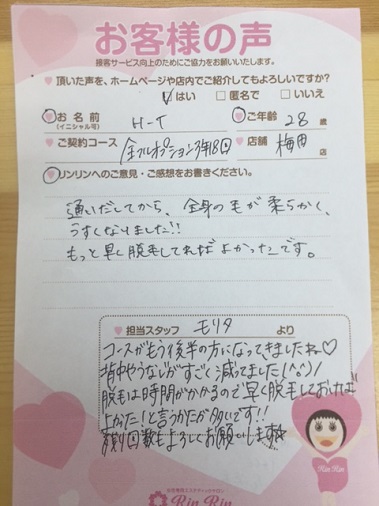 お客様の声
接客サービス向上のためにご協力をお願いいたします。
頂いた声を、ホームページや店内でご紹介してもよろしいですか?
はい 匿名で いいえ
お名前 (イニシャル可) H-T ご年齢 28 歳
ご契約コース 全フルオプション3年18回 店舗 梅田 店
リンリンへのご意見・ご感想をお書きください。
通いだしてから、全身の毛が柔らかく、
うすくなりました!!
もっと早く脱毛してればよかったです。
担当スタッフ モリタ より
コースがもう後半の方になってきましたね♡
背中やうなじがすごく減ってました!(^o^)/
脱毛は時間がかかるので早く脱毛しておけば
よかった!と言うかたが多いです!!
残り回数もよろしくお願いします
Rin Rin
女性専用エステティックサロン
Rin Rin